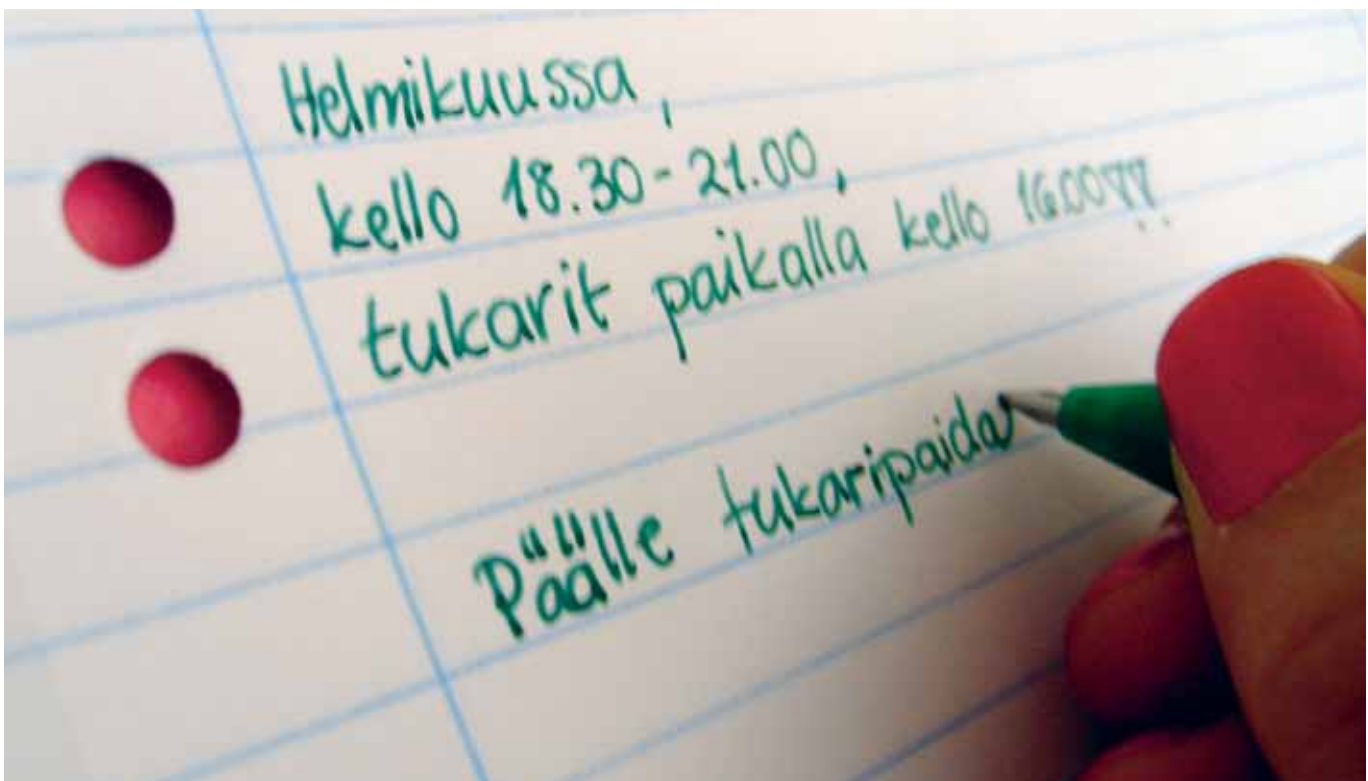 Helmikuussa,
kello 18.30-21.00,
tukarit paikalla kello 16.00!!
Päälle tukaripaida